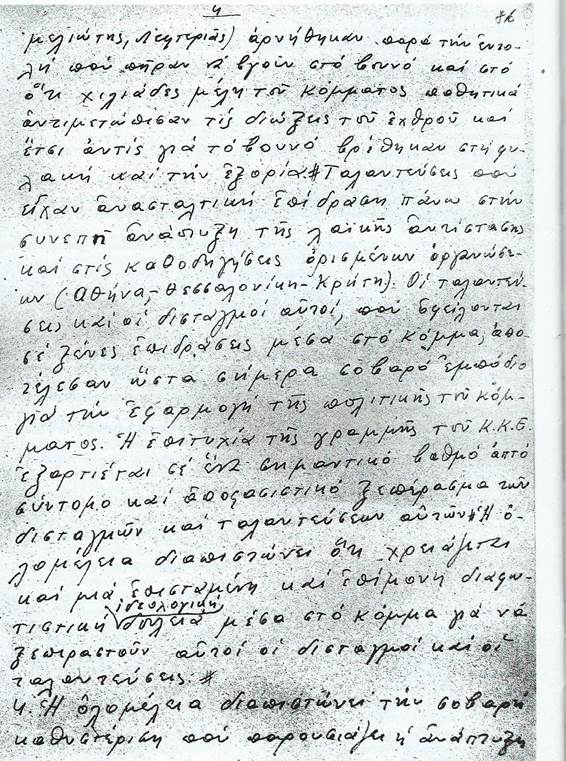 4
μελιώτης, Λευτεριάς) ἀρνήθηκαν παρά τήν ἐντο-
λή πού πῆραν νά βγοῦν στό βουνό καί στό
ὅτι χιλιάδες μέλη τοῦ κόμματος παθητικά
ἀντιμετώπισαν τίς διώξεις τοῦ ἐχθροῦ καί
ἔτσι ἀντίς γιά τό βουνό βρέθηκαν στή φυ-
λακή καί τήν ἐξορία # Ταλαντεύσεις πού
εἶχαν ἀνασταλτική ἐπίδραση πάνω στήν
συνεπῆ ἀνάπτυξη τῆς λαϊκῆς ἀντίστασης
καί στίς καθοδηγήσεις ὁρισμένων ὀργανώσε-
ων (Αθήνα,-Θεσσαλονίκη-Κρήτη). Οἱ ταλαντεύ-
σεις καί οἱ δισταγμοί αὐτοί, πού ὀφείλονται
σέ ξένες ἐπιδράσεις μέσα στό κόμμα, ἀπο-
τέλεσαν ὥστα σήμερα σοβαρό ἐμπόδιο
γιά τήν ἐφαρμογή τῆς πολιτικῆς τοῦ κόμ-
ματος. Ἡ ἐπιτυχία τῆς γραμμῆς τοῦ Κ.Κ.Ε.
ἐξαρτιέται σέ ἕνα σημαντικό βαθμό ἀπτό
σύντομο καί ἀποφασιστικό ξεπέρασμα τῶν
δισταγμῶν καί ταλαντεύσεων αὐτῶν # Ἡ ὁ-
λομέλεια διαπιστώνει ὅτι χρειάζεται
καί μιά ἐπισταμένη καί ἐπίμονη διαφω-
τιστική ἰδεολογική δουλειά μέσα στό κόμμα γιά νά
ξεπεραστοῦν αὐτοί οἱ δισταγμοί καί οἱ
ταλαντεύσεις. #
4. Ἡ ὁλομέλεια διαπιστώνει τήν σοβαρή
καθυστέριση πού παρουσιάζει ἡ ἀνάπτυξη